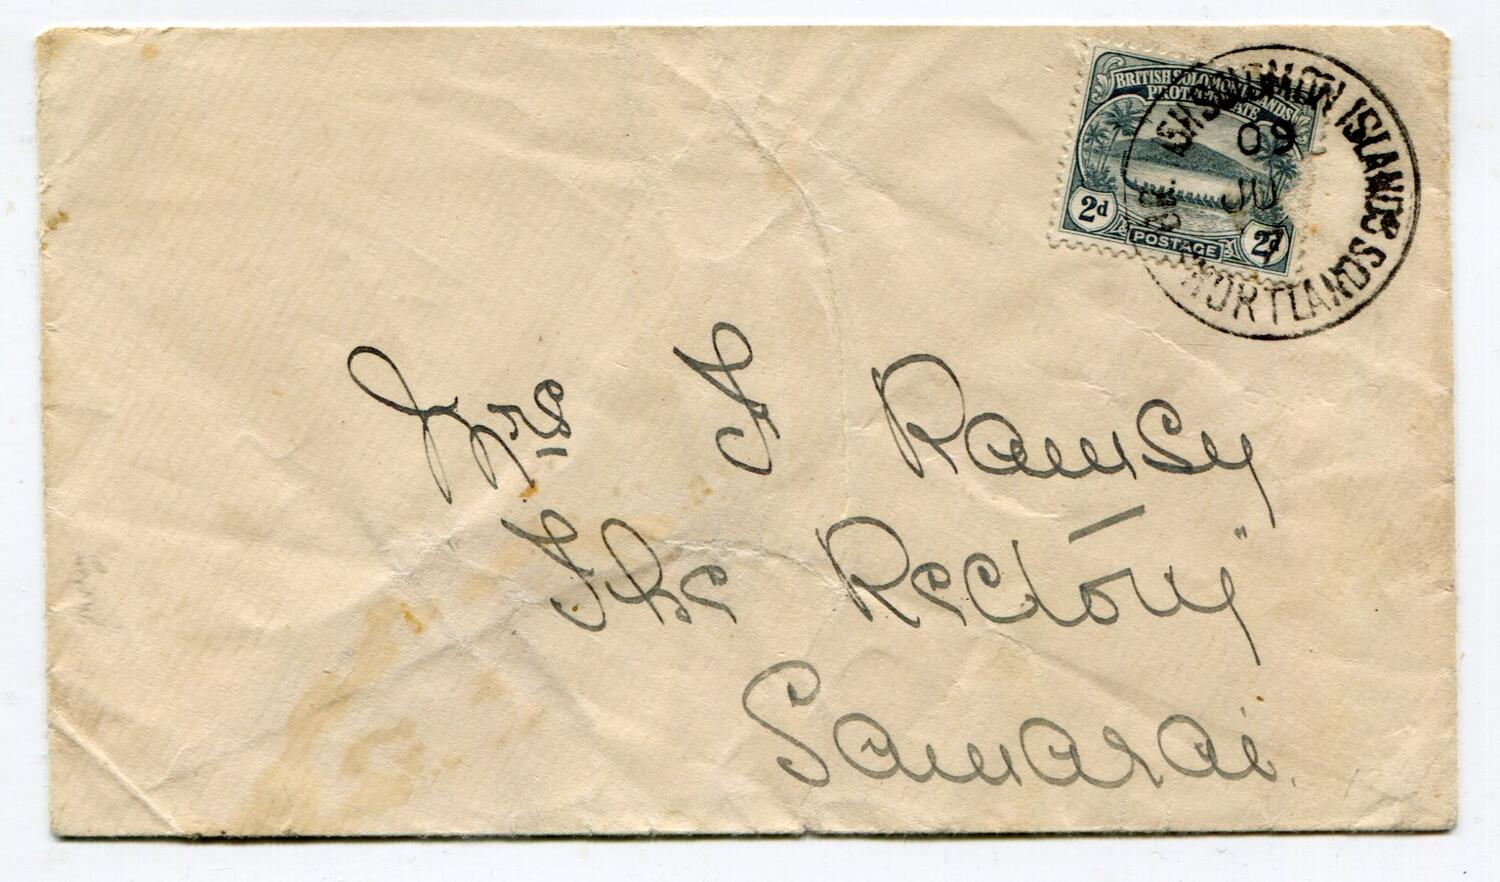 BRITISH SOLOMON ISLANDS
PROTECTORATE
2d POSTAGE 2d
ISH SOLOMON ISLANDS
09
JU
SHORTLANDS
Mrs F Ramsy
"The Rectory"
Samarai.